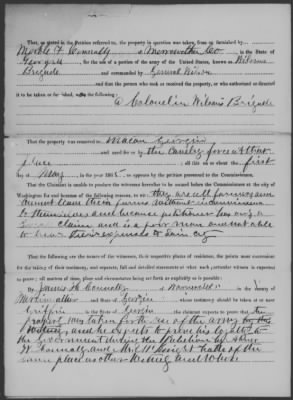 That, as stated in the Petition referred to, the property in question was taken from or furnished by
Connally of Merriwether Co in the State of
Georgia for the use of a portion of the army of the United States, known as Wilsons
Brigade and commanded by General Wilson
and that the person who took or received the property, or who authorized or directed
it to be taken or furnished, was the following:
a Colonel in Wilsons Brigade
That the property was removed to Macon Georgia
and used for or by the Cavalry force at that
place ; all this on or about the first
day of May , in the year 1865, as appears by the petition presented to the Commissioners.
That the Claimant is unable to produce the witnesses hereafter to be named before the Commissioners at the city of
Washington for and because of the following reasons, to wit: they are all farmers and
cannot leave their farms without inconvenience
to themselves and because petitioner has only a
small claim and is a poor man and not able
to bear their expenses to Washington
The following are the names of the witnesses, their respective places of residence, the points most convenient
for the taking of their testimony, and separate, full and detailed statements of what each particular witness is expected
to prove; all matters of time, place and circumstance being set forth as explicitly as is possible:
By James M Connally of in the County of
and State of Georgia whose testimony should be taken at or near
Griffin in the State of Georgia the claimant expects to prove that the
property was taken for the use of the army
and he expects to prove his loyalty to
the Government during the Rebellion by
W Connally and both of the
same place as other